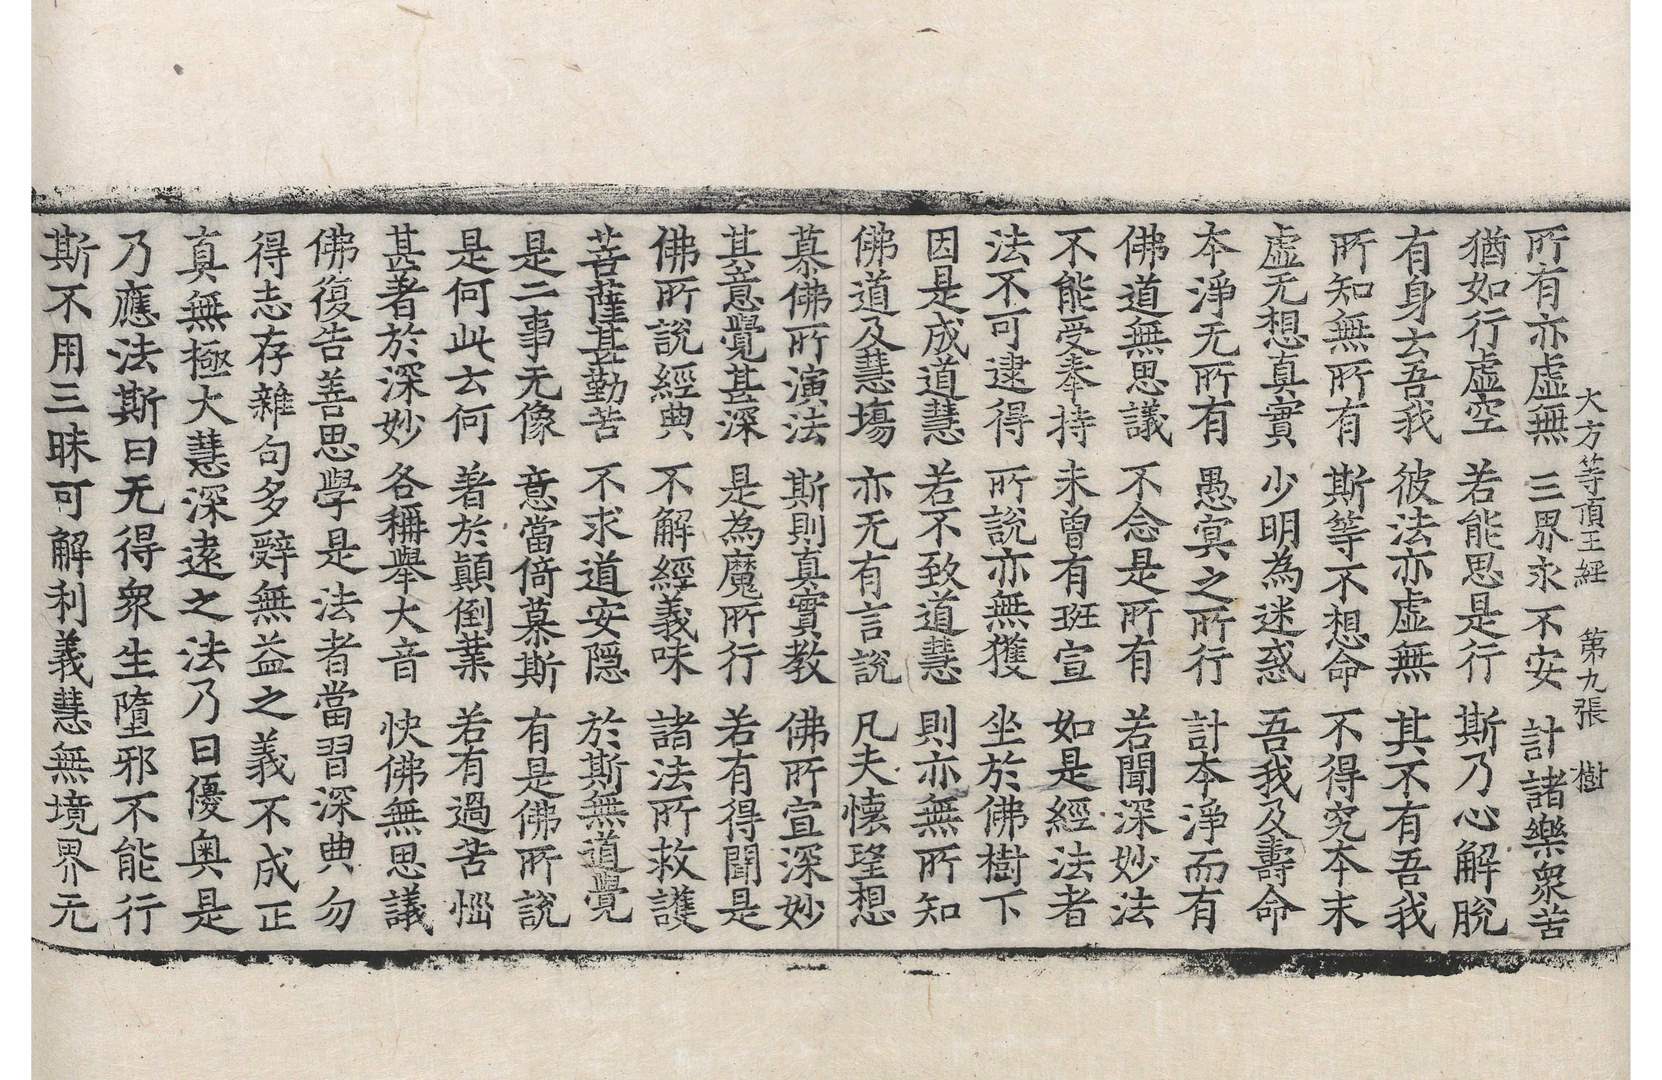 大方等頂王經　第九張　樹
所有亦虛無　三界永不安　計諸樂眾苦
猶如行虛空　若能思是行　斯乃心解脫
有身云吾我　彼法亦虛無　其不有吾我
所知無所有　斯等不想命　不得究本末
虛无想真實　少明為迷惑　吾我及壽命
本淨无所有　愚冥之所行　計本淨而有
佛道無思議　不念是所有　若聞深妙法
不能受奉持　未曾有班宣　如是經法者
法不可逮得　所說亦無獲　坐於佛樹下
因是成道慧　若不致道慧　則亦無所知
佛道及慧場　亦无有言說　凡夫懷望想
慕佛所演法　斯則真實教　佛所宣深妙
其意覺甚深　是為魔所行　若有得聞是
佛所說經典　不解經義味　諸法所救護
菩薩甚勤苦　不求道安隱　於斯無道覺
是二事无像　意當倚慕斯　有是佛所說
是何此云何　著於顛倒葉　若有過苦惱
甚著於深妙　各稱舉大音　快佛無思議
佛復告善思學是法者當習深典勿
得志存雜句多辭無益之義不成正
真無極大慧深遠之法乃曰優奧是
乃應法斯曰无得眾生墮邪不能行
斯不用三昧可解利義慧無境界无